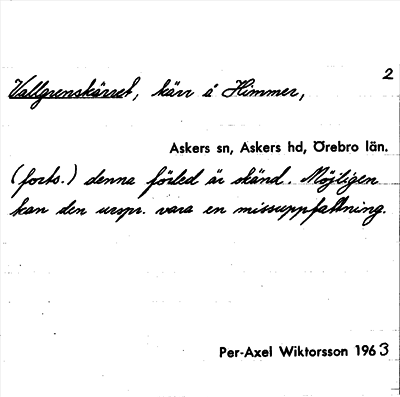 2
Vallgrenskärret, kärr å Himmer,
Askers sn, Askers hd, Örebro län.
(forts.) denna förled är okänd. Möjligen
kan den urspr. vara en missuppfattning.
Per-Axel Wiktorsson 1963